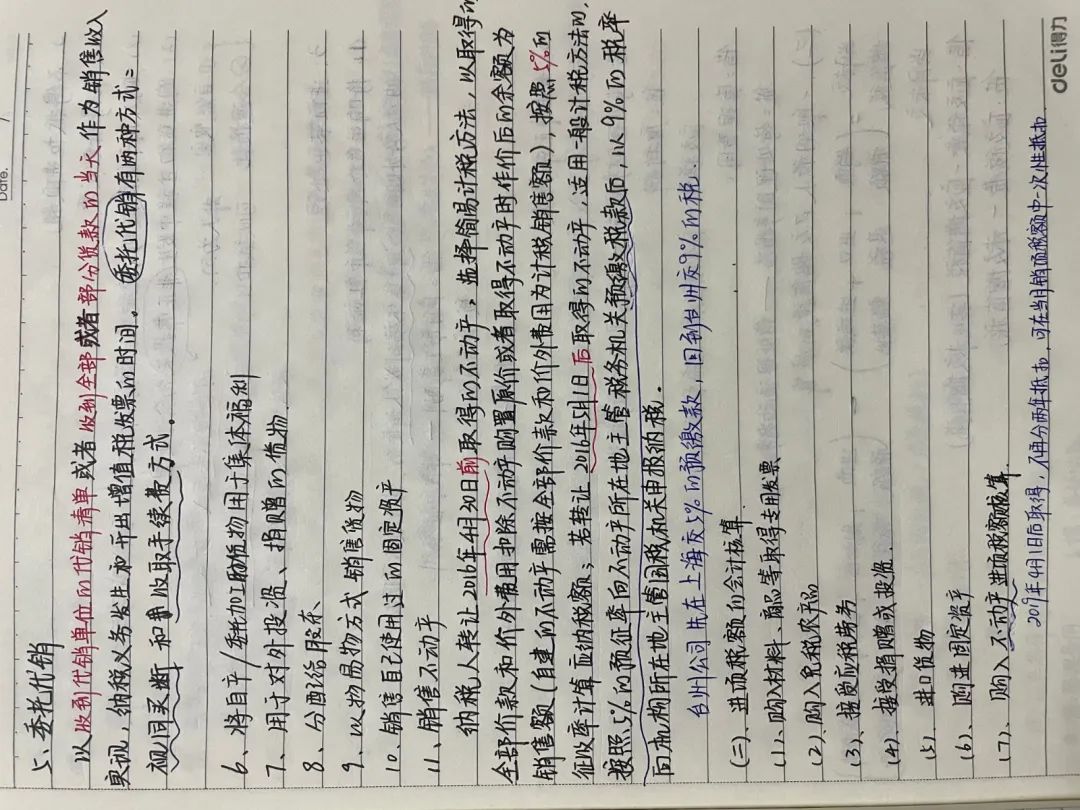 Date.
5、委托代销
以收到代销单位的代销清单或者收到全部或者部分货款的当天作为销售收入
实现，纳税义务发生和开出增值税发票的时间。委托代销有两种方式：
视同买断和收取手续费方式。
6、将自产/委托加工的货物用于集体福利
7、用于对外投资、捐赠的货物
8、分配给股东
9、以物易物方式销售货物
10、销售自己使用过的固定资产
11、销售不动产
纳税人转让2016年4月30日前取得的不动产，选择简易计税方法，以取得的
全部价款和价外费用扣除不动产购置原价或者取得不动产时作价后的余额为
销售额（自建的不动产需按全部价款和价外费用为计税销售额），按照5%的
征收率计算应纳税额；若转让2016年5月1日后取得的不动产，适用一般计税方法的，
按照5%的预征率向不动产所在地主管税务机关预缴税款后，以9%的税率
向机构所在地主管国税机关申报纳税.
台州公司先在上海交5%的预缴款，回到台州交9%的税.
(二)、进项税额的会计核算
(1)、购入材料、商品等取得专用发票
(2)、购入免税农产品
(3)、接受应税劳务
(4)、接受捐赠或投资.
(5)、进口货物
(6)、购进固定资产
(7)、购入不动产进项税额核算
2019年4月1日后取得，不再分两年抵扣，可在当月销项税额中一次性抵扣.
deli得力